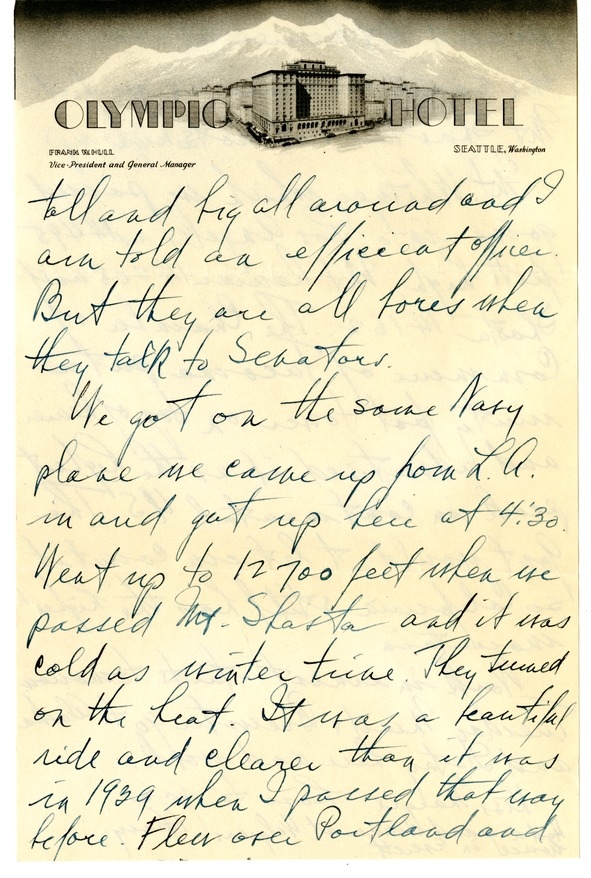 OLYMPIC HOTEL
FRANK W. HULL
Vice-President and General Manager
SEATTLE, Washington
tall and big all around and I
am told an efficient officer.
But they are all bores when
they talk to Senators.
We got on the same Navy
plane we came up from L.A.
in and got up here at 4:30.
Went up to 12700 feet when we
passed Mt. Shasta and it was
cold as winter time. They turned
on the heat. It was a beautiful
ride and clearer than it was
in 1939 when I passed that way
before. Flew over Portland and